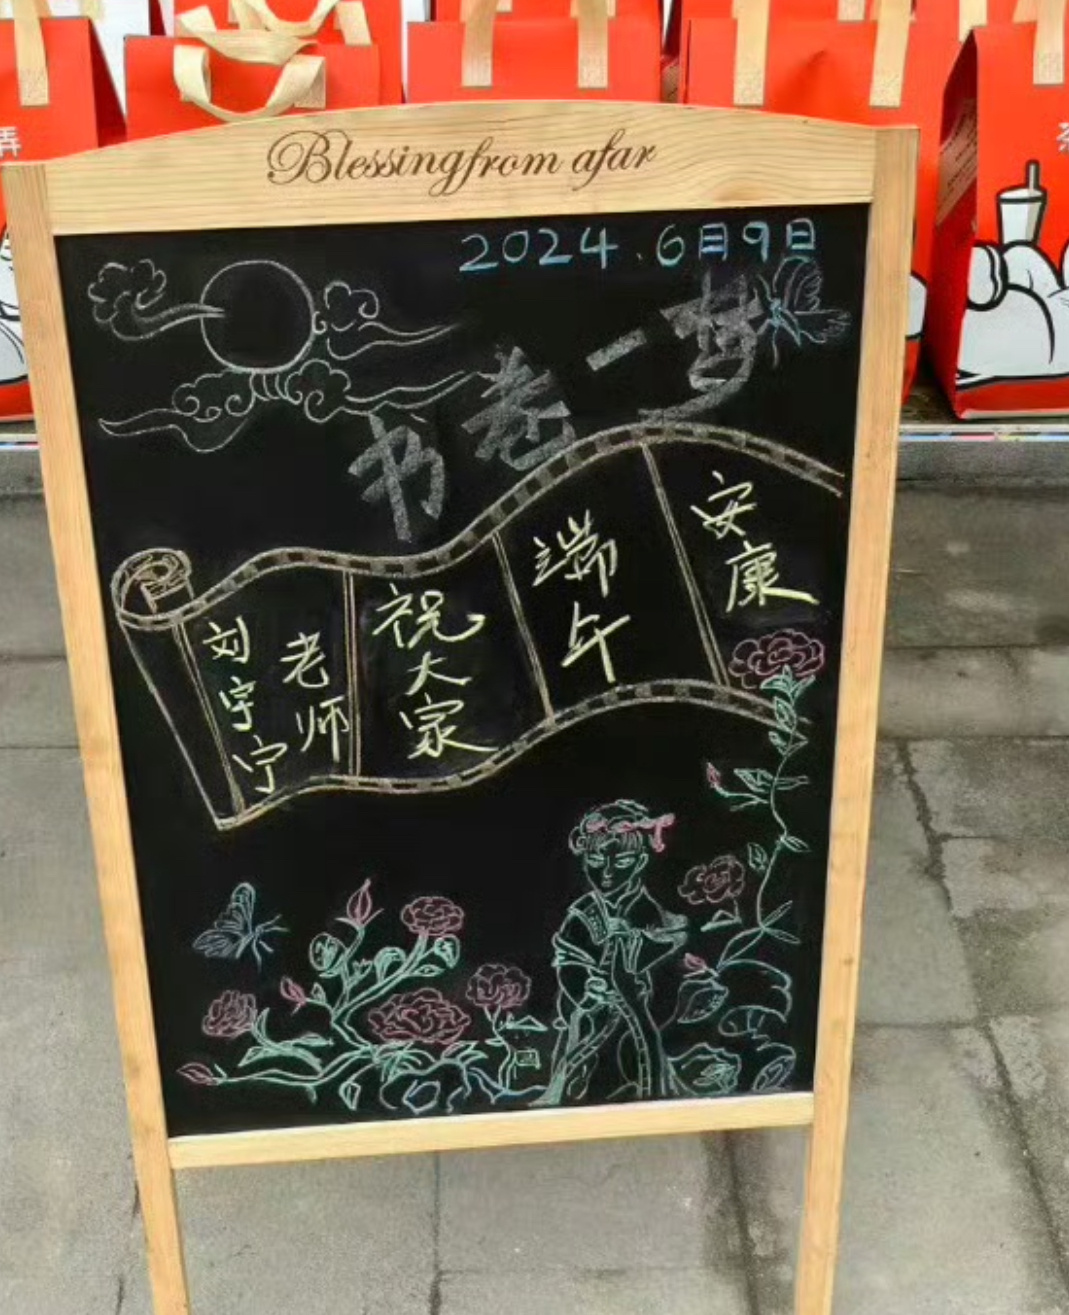 Blessing from afar
2024.6月9日
书卷一梦
刘宇宁
老师
祝大家
端午
安康
弄
茶